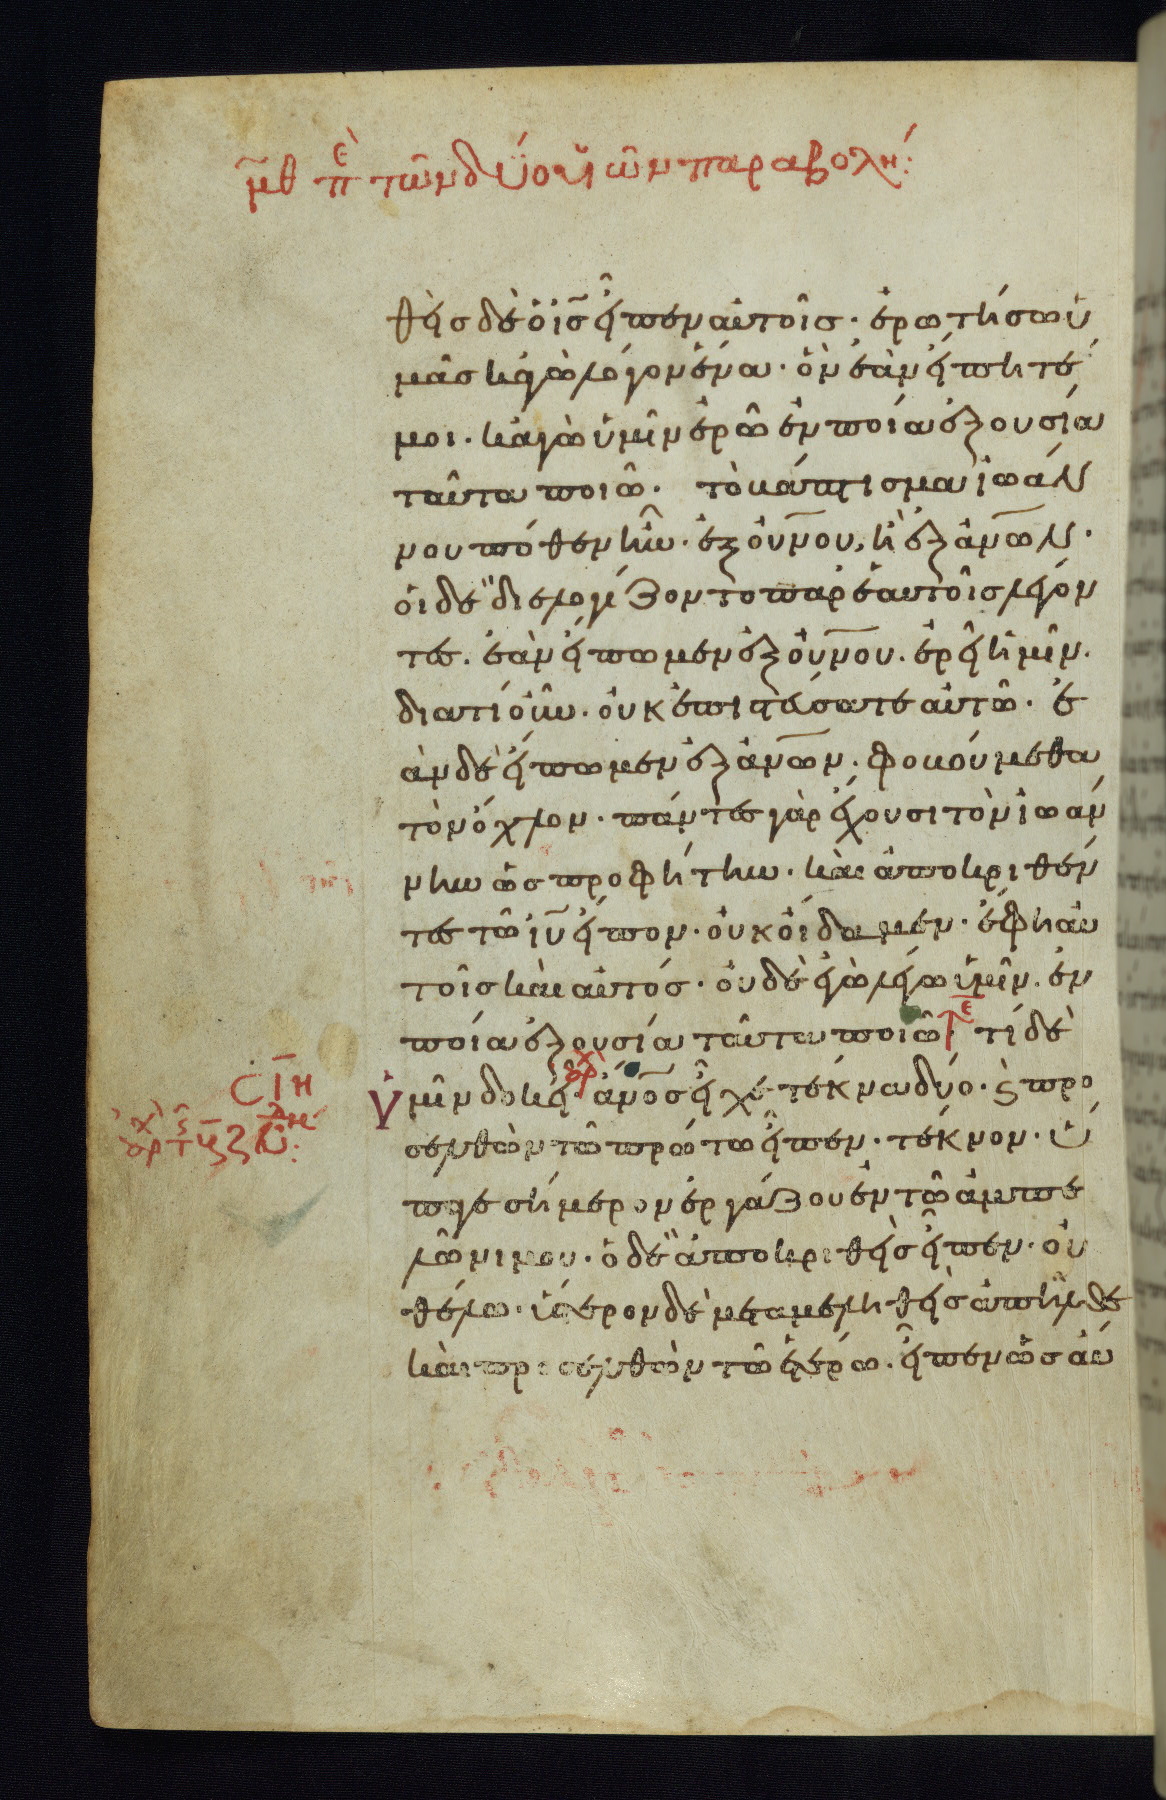 μθ πε τῶν δύο υἱῶν παραβολή:
θεὶς δὲ ὁ ις εἶπεν αὐτοῖς· ἐρωτήσω ὑ
μᾶς κἀγὼ λόγον ἕνα· ὃν ἐὰν εἴπητέ
μοι· κἀγὼ ὑμῖν ἐρῶ ἐν ποία ἐξουσία
ταῦτα ποιῶ· τὸ βάπτισμα ἰωάν
νου πόθεν ἦν· ἐξ οὐνου, ἢ ἐξ ἀνων·
οἱ δὲ διελογίζοντο παρ ἑαυτοῖς λέγον
τες· ἐὰν εἴπωμεν ἐξ οὐνου· ἐρεῖ ἡμῖν·
διατί οὖν· οὐκ ἐπιστεύσατε αὐτῶ· ἐ
ὰν δὲ εἴπωμεν ἐξ ἀνων· φοβούμεθα
τὸν ὄχλον· πάντες γὰρ ἔχουσι τὸν ἰωάν
νην ὡς προφήτην· καὶ ἀποκριθέν
τες τῶ ιυ εἶπον· οὐκ οἴδαμεν· ἔφη αὐ
τοῖς καὶ αὐτός· οὐδὲ ἐγὼ λέγω ὑμῖν· ἐν
ποία ἐξουσία ταῦτα ποιῶ τί δὲ
ὑμῖν δοκεῖ· ἀνος εἶχε τέκνα δύο· καὶ προ
σελθὼν τῶ πρώτω εἶπεν· τέκνον· ὕ
παγε σήμερον ἐργάζου ἐν τῶ ἀμπε
λῶνι μου· ὁ δὲ ἀποκριθεὶς εἶπεν· οὐ
θέλω· ὕστερον δὲ μεταμεληθεὶς ἀπῆλθε
καὶ προσελθὼν τῶ ἑτέρω· εἶπεν ὡσαύ